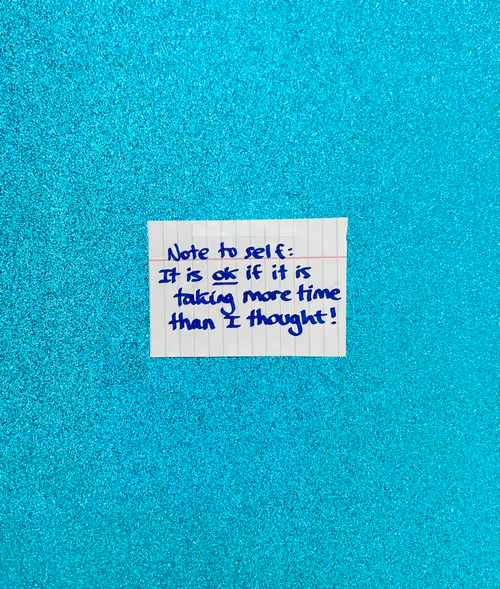 Note to self:
It is ok if it is
taking more time
than I thought!